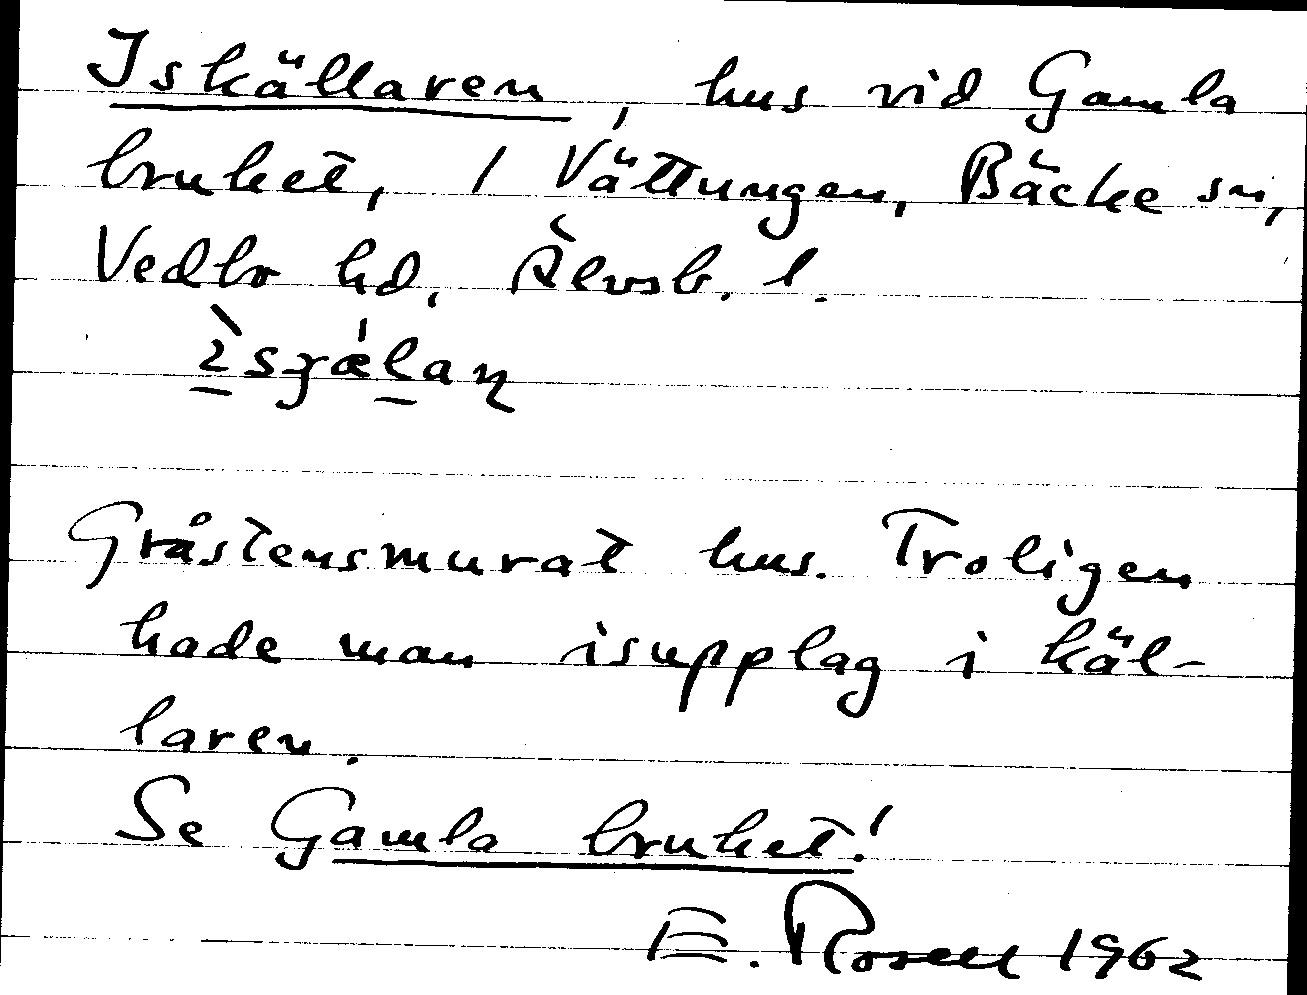 Iskällaren, hus vid Gamla
bruket, 1 Vättungen, Bäcke sn,
Vedbo hd, Älvsb. l.
Gråstensmurat hus. Troligen
hade man isupplag i käl-
laren.
Se Gamla bruket!
E. Rosell 1962